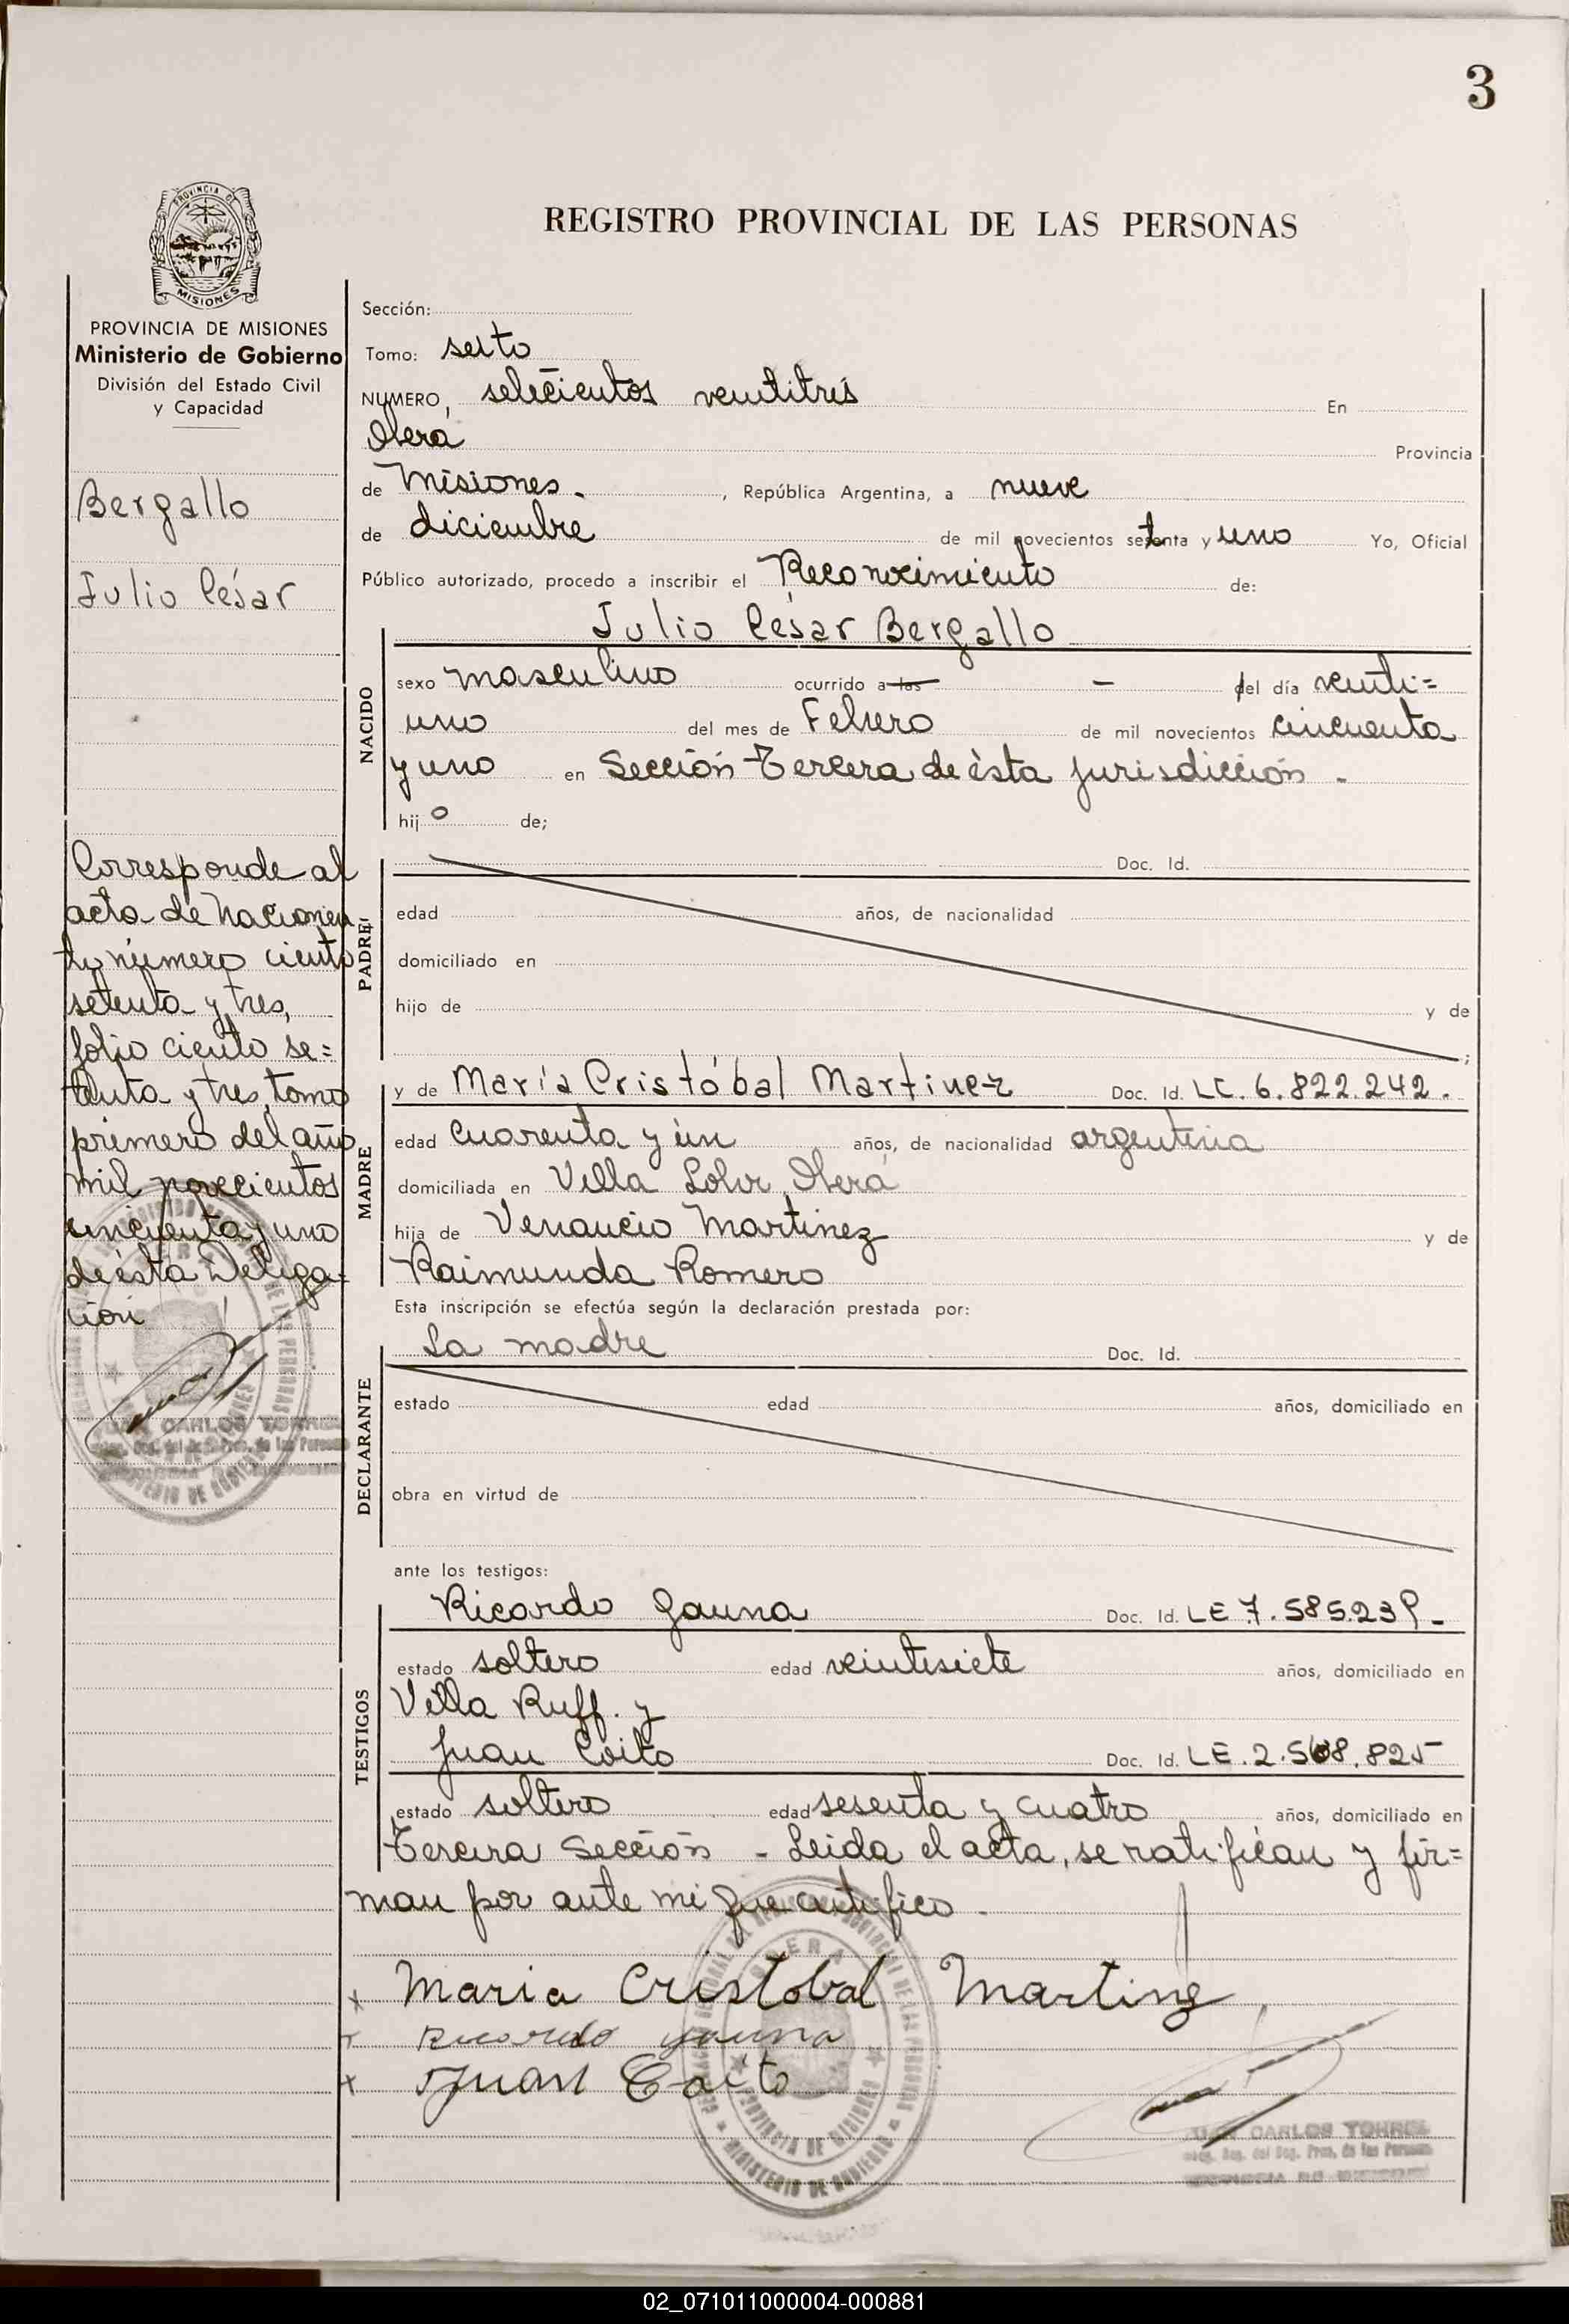 3
REGISTRO PROVINCIAL DE LAS PERSONAS
PROVINCIA DE
MISIONES
PROVINCIA DE MISIONES
Ministerio de Gobierno
División del Estado Civil
y Capacidad
Bergallo
Julio César
Corresponde al
acta de nacimien
to número ciento
setenta y tres,
folio ciento se=
tenta y tres, tomo
primero del año
mil novecientos
cincuenta y uno
de ésta Delega=
ción
Sección:
Tomo: sexto
NUMERO, setecientos veintitrés En
Oberá Provincia
de Misiones. , República Argentina, a nueve
de diciembre de mil novecientos setenta y uno Yo, Oficial
Público autorizado, procedo a inscribir el Reconocimiento de:
Julio César Bergallo
NACIDO
sexo masculino ocurrido a las - del día veinti=
uno del mes de Febrero de mil novecientos cincuenta
y uno en Sección Tercera de ésta jurisdicción.
hijo de;
PADRE
Doc. Id.
edad años, de nacionalidad
domiciliado en
hijo de y de
;
MADRE
y de María Cristóbal Martinez Doc. Id. LC. 6.822.242.
edad cuarenta y un años, de nacionalidad argentina
domiciliada en Villa Lohr, Oberá
hija de Venancio Martinez y de
Raimunda Romero
Esta inscripción se efectúa según la declaración prestada por:
DECLARANTE
La madre Doc. Id.
estado edad años, domiciliado en
obra en virtud de
ante los testigos:
TESTIGOS
Ricardo Gauna Doc. Id. LE 7.585.239-
estado soltero edad veintisiete años, domiciliado en
Villa Ruff. y
Juan Coito Doc. Id. LE. 2.568.825
estado soltero edad sesenta y cuatro años, domiciliado en
Tercera Sección - Leida el acta, se ratifican y fir=
man por ante mi que certifico.
x Maria Cristobal Martinez
x Ricardo gauna
x Juan Coito
PROVINCIA DE MISIONES
MINISTERIO DE GOBIERNO
JUAN CARLOS TORRES
02_071011000004-000881